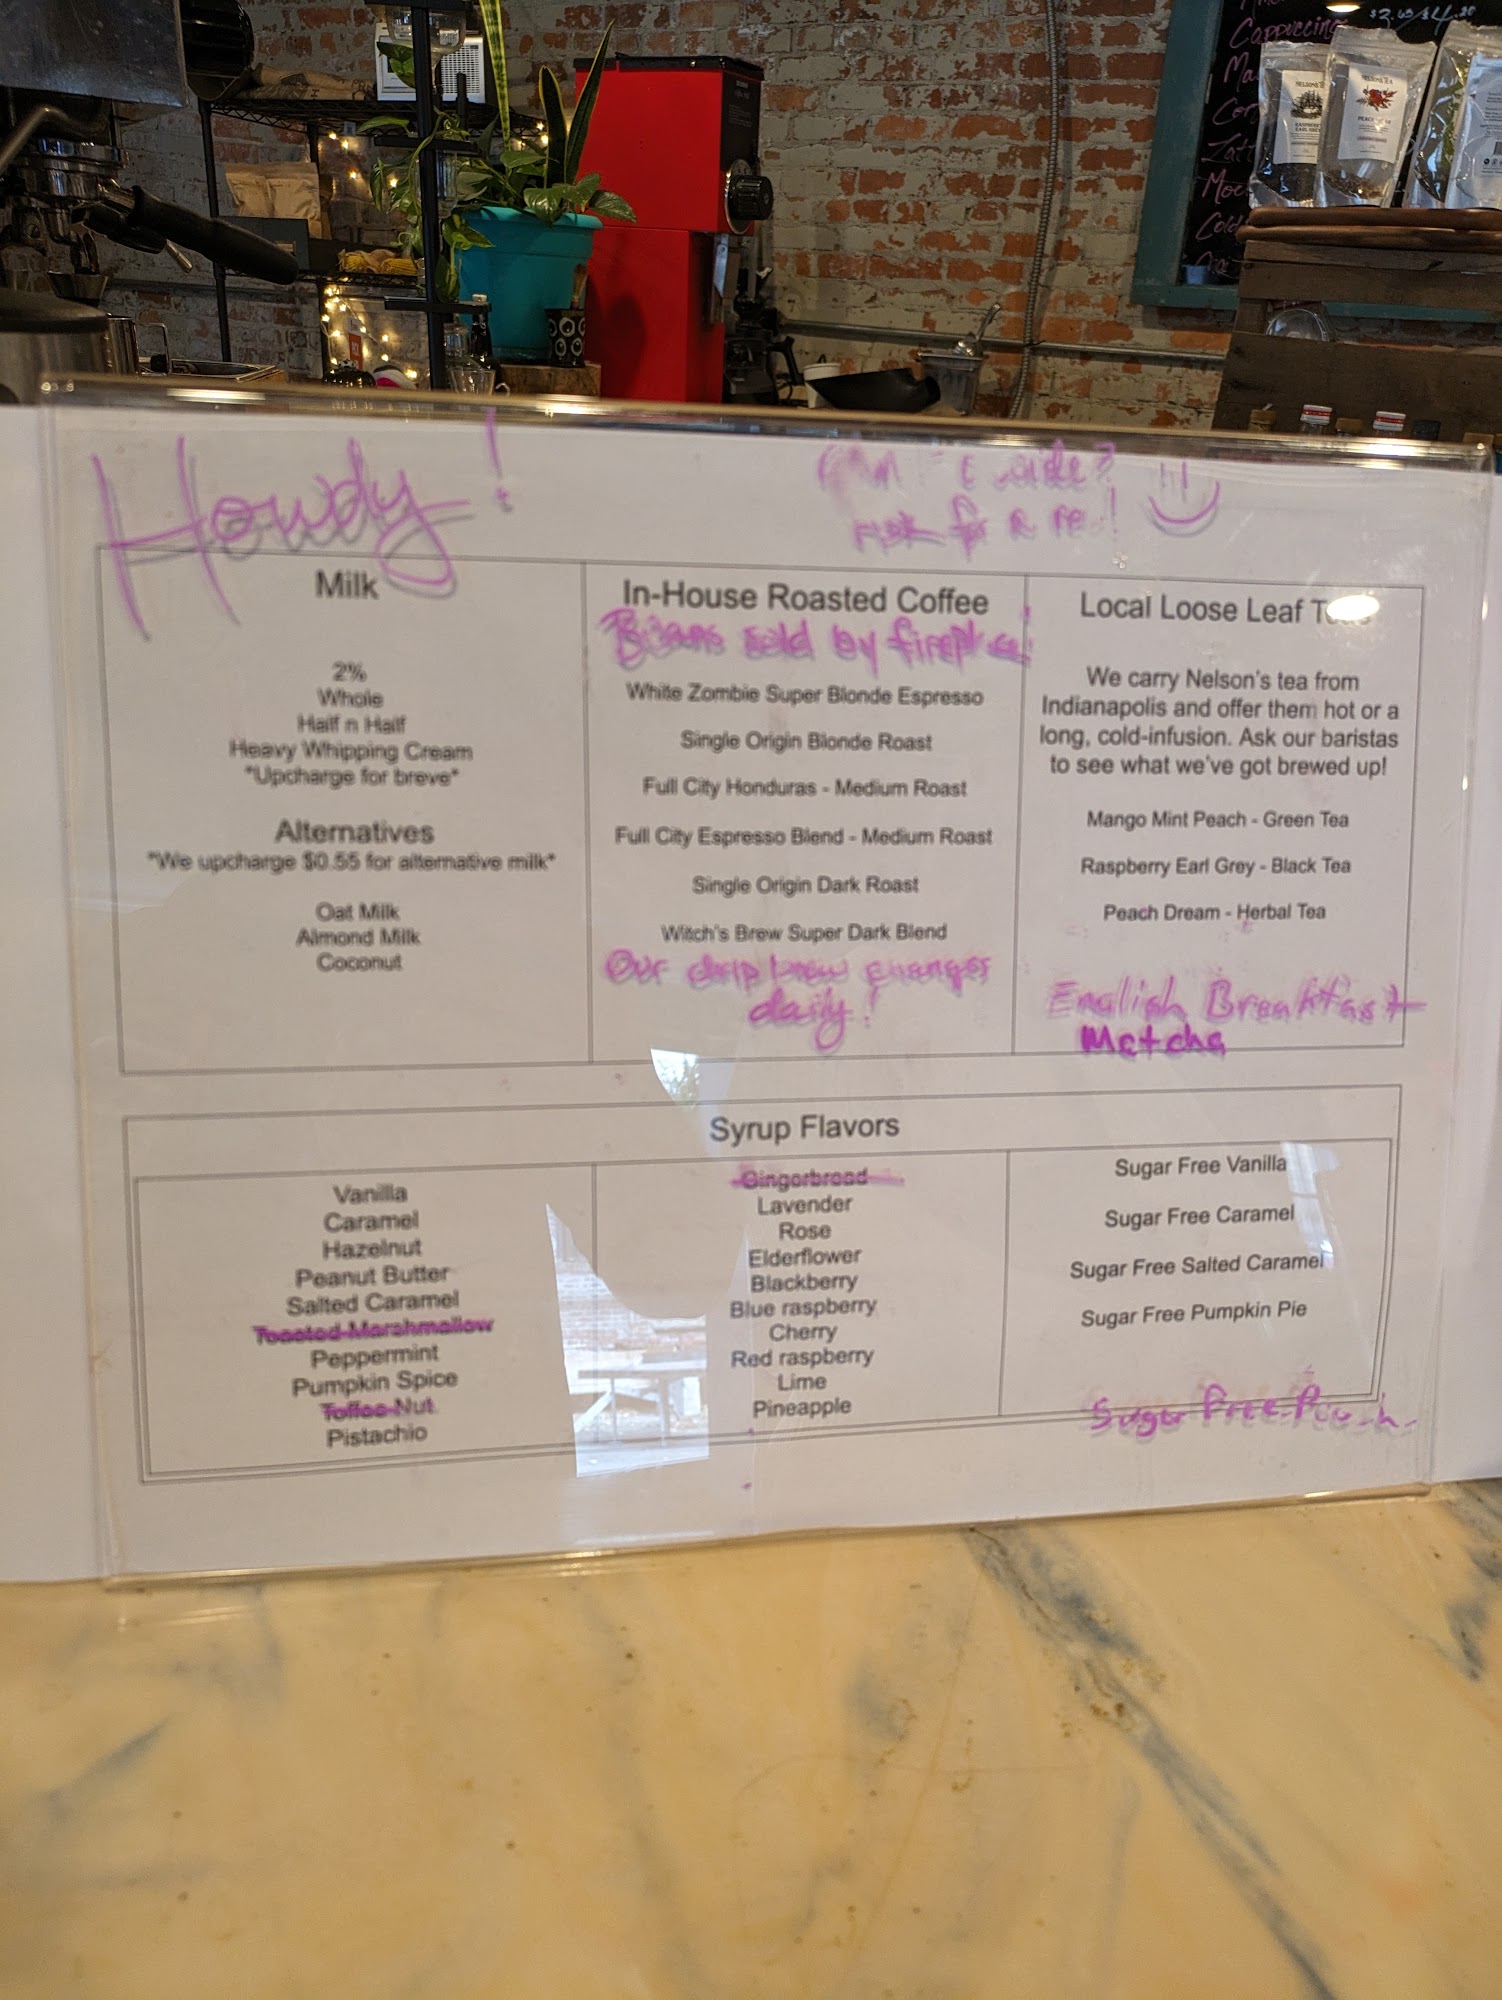 Cappuccino
$2.65/$4.20
NELSON'S TEA
RASPBERRY
EARL GREY
NELSON'S TEA
PEACH
Howdy!
for a re
Milk
2%
Whole
Half n Half
Heavy Whipping Cream
*Upcharge for breve*
Alternatives
*We upcharge $0.55 for alternative milk*
Oat Milk
Almond Milk
Coconut
In-House Roasted Coffee
Beans sold by fireplace!
White Zombie Super Blonde Espresso
Single Origin Blonde Roast
Full City Honduras - Medium Roast
Full City Espresso Blend - Medium Roast
Single Origin Dark Roast
Witch's Brew Super Dark Blend
Our drip brew changes
daily!
Local Loose Leaf
We carry Nelson's tea from
Indianapolis and offer them hot or a
long, cold-infusion. Ask our baristas
to see what we've got brewed up!
Mango Mint Peach - Green Tea
Raspberry Earl Grey - Black Tea
Peach Dream - Herbal Tea
English Breakfast
Matcha
Syrup Flavors
Vanilla
Caramel
Hazelnut
Peanut Butter
Salted Caramel
Toasted Marshmallow
Peppermint
Pumpkin Spice
Toffee Nut
Pistachio
Gingerbread
Lavender
Rose
Elderflower
Blackberry
Blue raspberry
Cherry
Red raspberry
Lime
Pineapple
Sugar Free Vanilla
Sugar Free Caramel
Sugar Free Salted Caramel
Sugar Free Pumpkin Pie
Sugar Free Peach